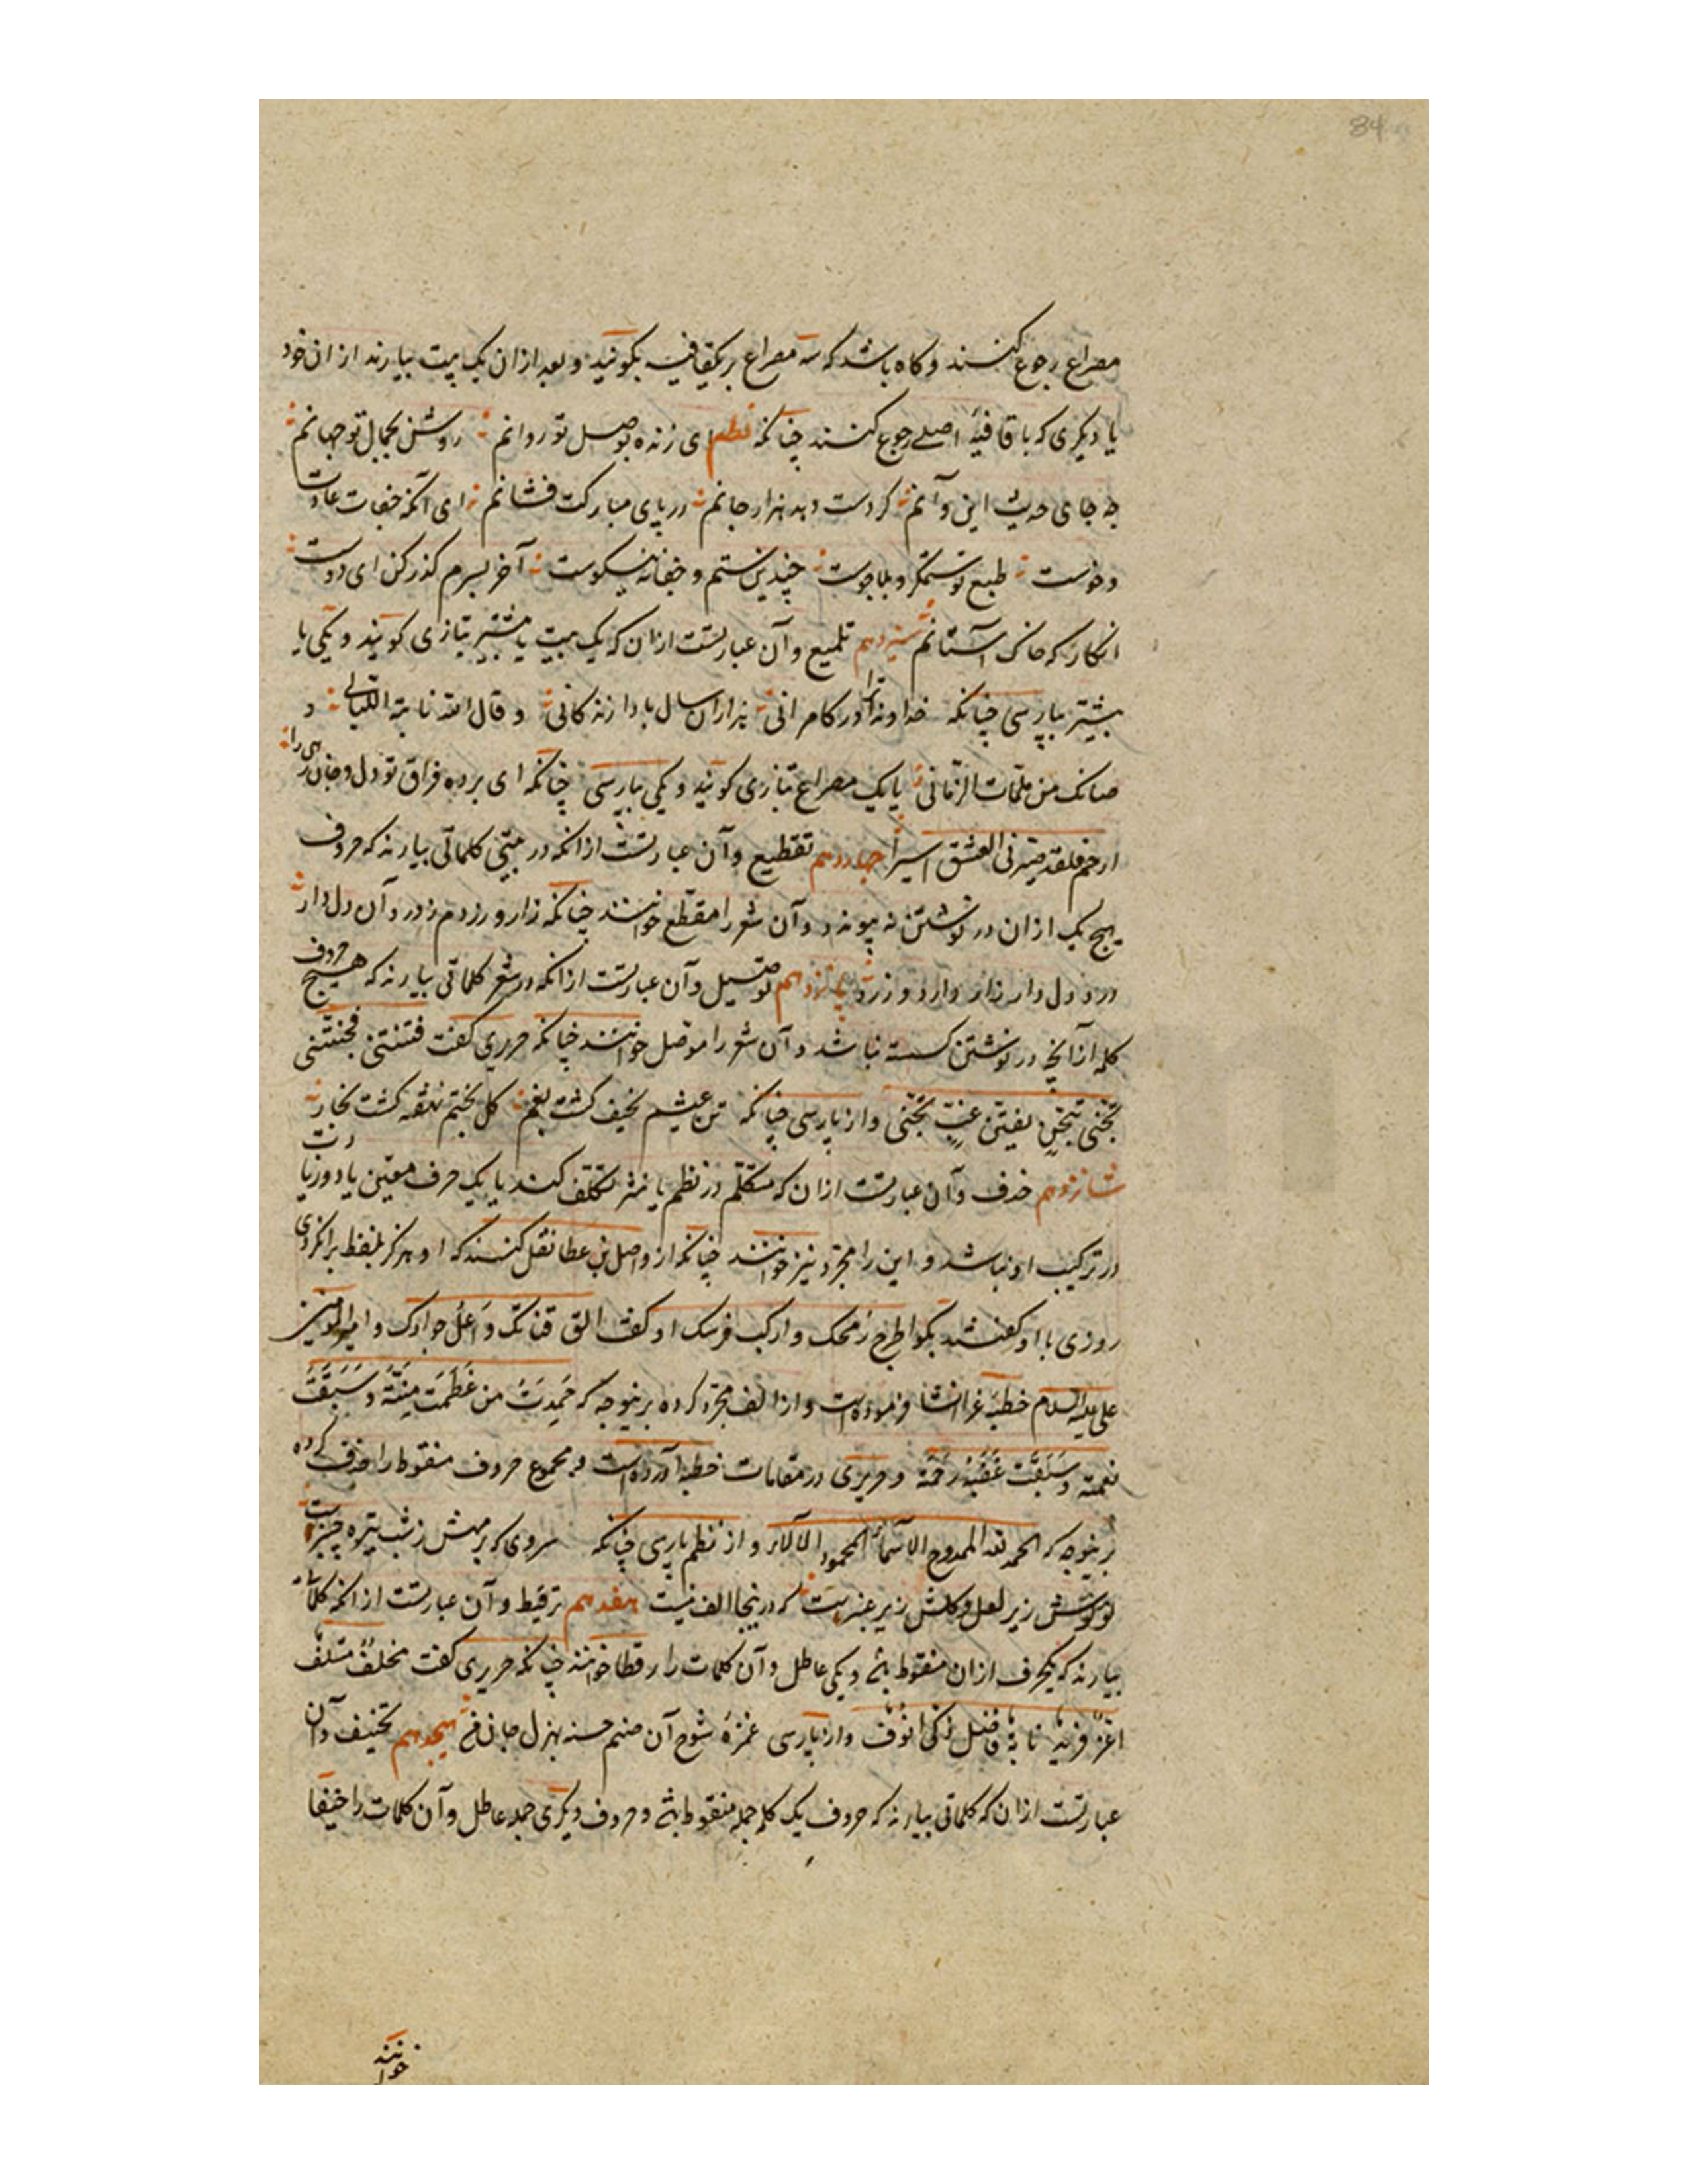 34
مصراع رجوع کنند و کاه باشد که سه مصراع بر یکقافیه بکویند و بعد ازان یک بیت بیارند ازان خود
یا دیکری که با قافیهٔ اصلے رجوع کنند چنانکه نظم ای زنده بوصل تو روانم روشن بجمال تو جهانم
چه جای حدیث این و آنم کر دست دهد هزار جانم در پای مبارکت فشانم ای آنکه جفات عادت
و خوست طبع تو ستمکر و بلاجوست چندین ستم و جفا نه نیکوست آخر بسرم کذر کن ای دوست
انکار که خاک آستانم سیزدهم تلمیع و آن عبارتست ازان که یک بیت یا بیشتر بتازی کویند و یکی یا
بیشتر بپارسی چنانکه خداوندا ترا در کامرانی هزاران سال بادا زندکانی و قال الله نائبة اللیالی و
صانک من ملمات الزمانی یا یک مصراع بتازی کویند و یکی بپارسی چنانکه ای برده فراق تو دل و جان رهی را
ارحم فلقد صیرنی العشق اسیرا چهاردهم تقطیع و آن عبارتست ازانکه در بیتی کلماتی بیارند که حروف
هیچ یک ازان در نوشتن نه پیوندد و آن شعر را مقطع خوانند چنانکه زار و زردم ز درد آن دل دار
درد دل دار زار دارد و زرد پانزدهم توصیل و آن عبارتست ازانکه در شعر کلماتی بیارند که هیچ حروف
کلمه ازانچه در نوشتن کسسته نباشد و آن شعر را موصل خوانند چنانکه حریری کفت فتنتنی فجننتنی
تجنی بتجن یفتن غب تجنی و از پارسی چنانکه تن عیشم نحیف کشت بغم کل بختم نهفته کشت بخار
شانزدهم حذف و آن عبارتست ازان که متکلم در نظم یا نثر تکلف کند یا یک حرف معین یا دو زیادت
در ترکیب او نباشد و این را مجرد نیز خوانند چنانکه از واصل بن عطا نقل کنند که او هرکز بلفظ را نکردی
روزی با او کفتند بکو اطرح رمحک و ارکب فرسک او کفت الق قناتک و اعل جوادک و امیرالمومنین
علی علیه السلام خطبهٔ غرا انشا فرموده است و از الف مجرد کرده برینوجه که حمدت من عظمت منته و سبغت
نعمته و سبقت غضبه رحمته و حریری در مقامات خطبه آورده است و مجموع حروف منقوط را حذف کرده
برینوجه که الحمد لله الممدوح الاسماء المحمود الالاء و از نظم پارسی چنانکه سروی که بر مهش ز شب تیره چنبرست
لولوش زیر لعل و کلش زیر عنبرست که درینجا الف نیست هفدهم ترقیط و آن عبارتست ازانکه کلمات
بیارند که یکحرف ازان منقوط باشد و یکی عاطل و آن کلمات را رقطا خوانند چنانکه حریری کفت مخلف متلف
اغر فرید نابه فاضل ذکی انوف و از پارسی غمزهٔ شوخ آن صنم خسته بهزل جان هیجدهم تخییف و آن
عبارتست ازان که کلماتی بیارند که حروف یک کلمه جمله منقوط باشد و حروف دیکری جمله عاطل و آن کلمات را خیفا
خوانند